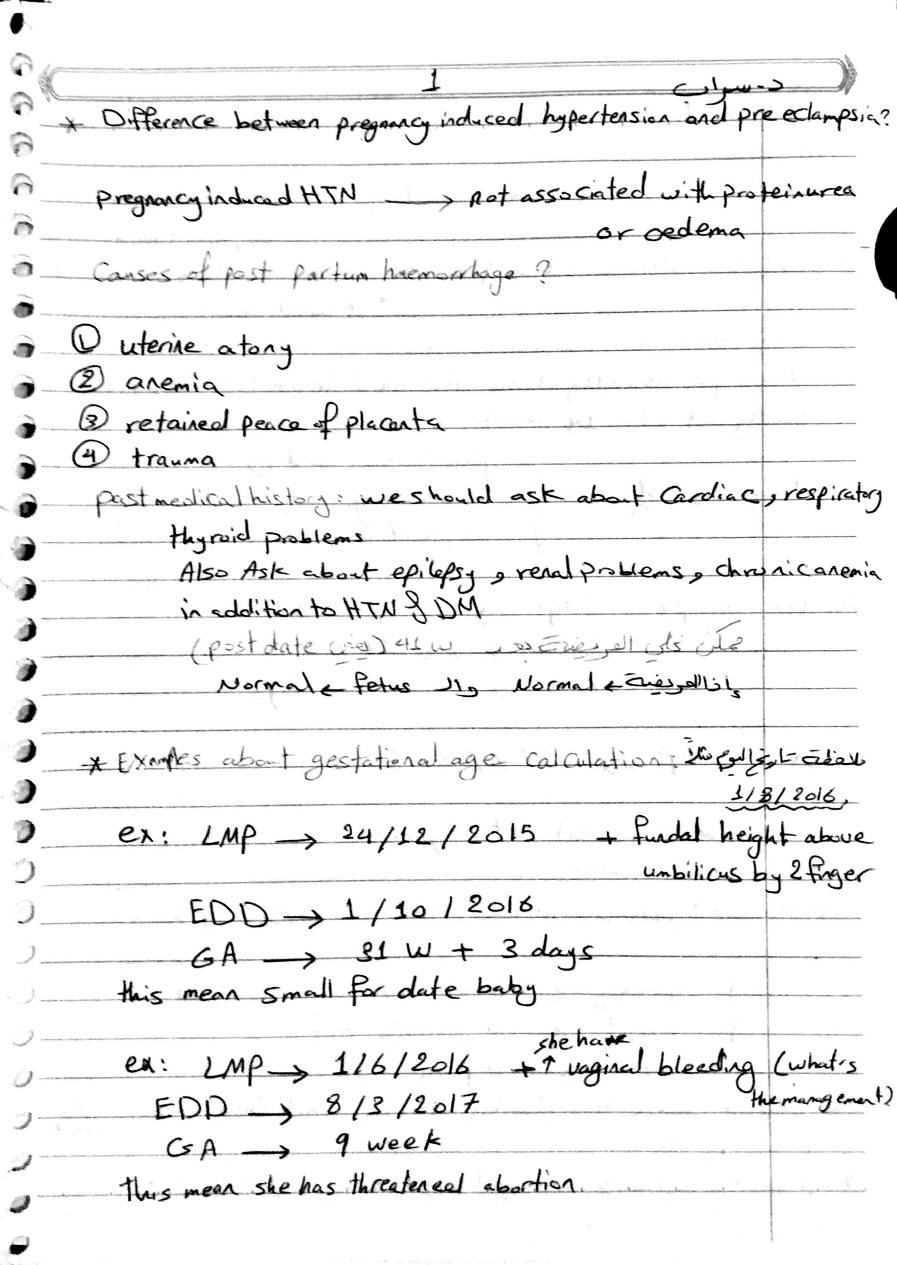 1
د. سراب
* Difference between pregnancy induced hypertension and preeclampsia?
pregnancy induced HTN → not associated with proteinurea
or oedema
Causes of post partum haemorrhage ?
① uterine atony
② anemia
③ retained peace of placenta
④ trauma
past medical history: we should ask about Cardiac, respiratory
thyroid problems
Also Ask about epilepsy, renal problems, chronic anemia
in addition to HTN & DM
ممكن خلي المريضة بعد 41 w (يعني post date)
وإذا المريضة ← Normal والـ fetus ← Normal
* Examples about gestational age calculation: ملاحظة تاريخ اليوم مثلاً
1/8/2016
ex: LMP → 24/12/2015 + fundal height above
umbilicus by 2 finger
EDD → 1/10/2016
GA → 31 W + 3 days
this mean small for date baby
she have
ex: LMP → 1/6/2016 + ↑ vaginal bleeding (what's
the management)
EDD → 8/3/2017
GA → 9 week
This mean she has threatened abortion.